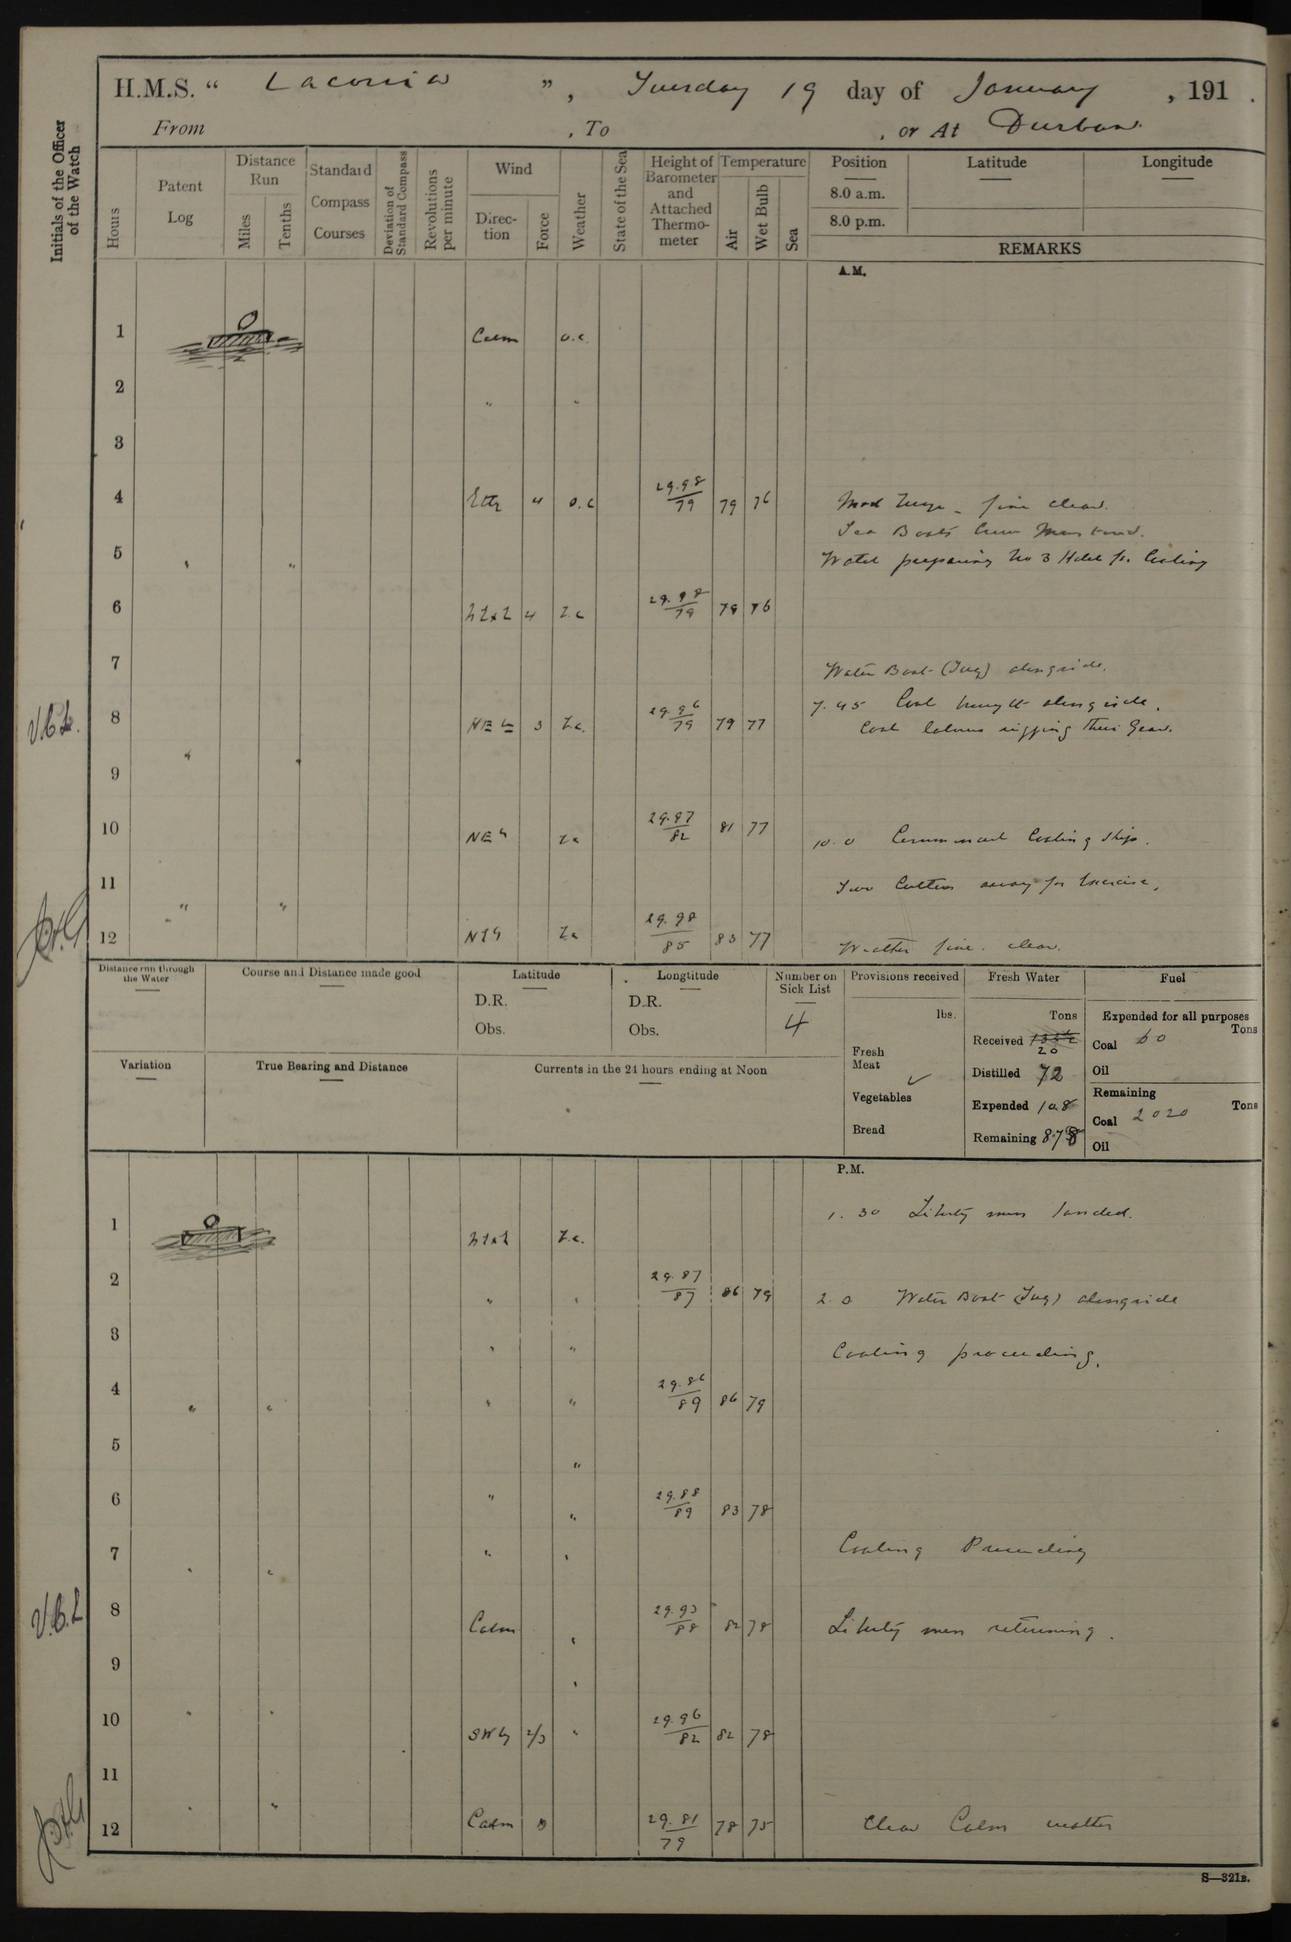 H.M.S. “ Laconia ”, Tuesday 19 day of January , 191 .
From , To , or At Durban
Initials of the Officer of the Watch
Hours
Patent Log
Distance Run
Miles
Tenths
Standard Compass Courses
Deviation of Standard Compass
Revolutions per minute
Wind
Direction
Force
Weather
State of the Sea
Height of Barometer and Attached Thermometer
Temperature
Air
Wet Bulb
Sea
Position
Latitude
Longitude
8.0 a.m.
8.0 p.m.
REMARKS
A.M.
1 Calm o.c.
2 " "
3
4 4 o.c 29.98/79 79 76 fine clear.
Sea Boats Crew
5 Watch preparing No 3 Hold for Coaling
6 4 29.98/79 79 76
7 Water Boat (Tug) alongside.
V.C.L.
7.45 Coal brought alongside.
8 3 29.96/79 79 77 Coal labours rigging their Gear.
9
10 29.97/82 81 77 10.0 Commenced Coaling Ship.
11 Two Cutters away for Exercise.
12 29.98/85 83 77 Weather fine. clear.
Distance run through the Water
Course and Distance made good
Latitude
D.R.
Obs.
Longtitude
D.R.
Obs.
Number on Sick List
4
Provisions received
lbs.
Fresh Meat
Vegetables
Bread
Fresh Water
Tons
Received 20
Distilled 72
Expended 108
Remaining 878
Fuel
Expended for all purposes
Tons
Coal 60
Oil
Remaining
Tons
Coal 2020
Oil
Variation
True Bearing and Distance
Currents in the 24 hours ending at Noon
P.M.
1.30 Liberty men landed.
1
2 " " 29.87/87 86 79 2.0 Water Boat (Tug) alongside
3 " " Coaling proceeding.
4 " " 29.86/89 86 79
5 "
6 " " 29.88/89 83 78
7 " " Coaling Proceeding
V.C.L
8 Calm " 29.93/88 82 78 Liberty men returning.
9 "
10 2/3 " 29.96/82 82 78
11
12 Calm 0 29.81/79 78 75 Clear Calm weather
S—321B.